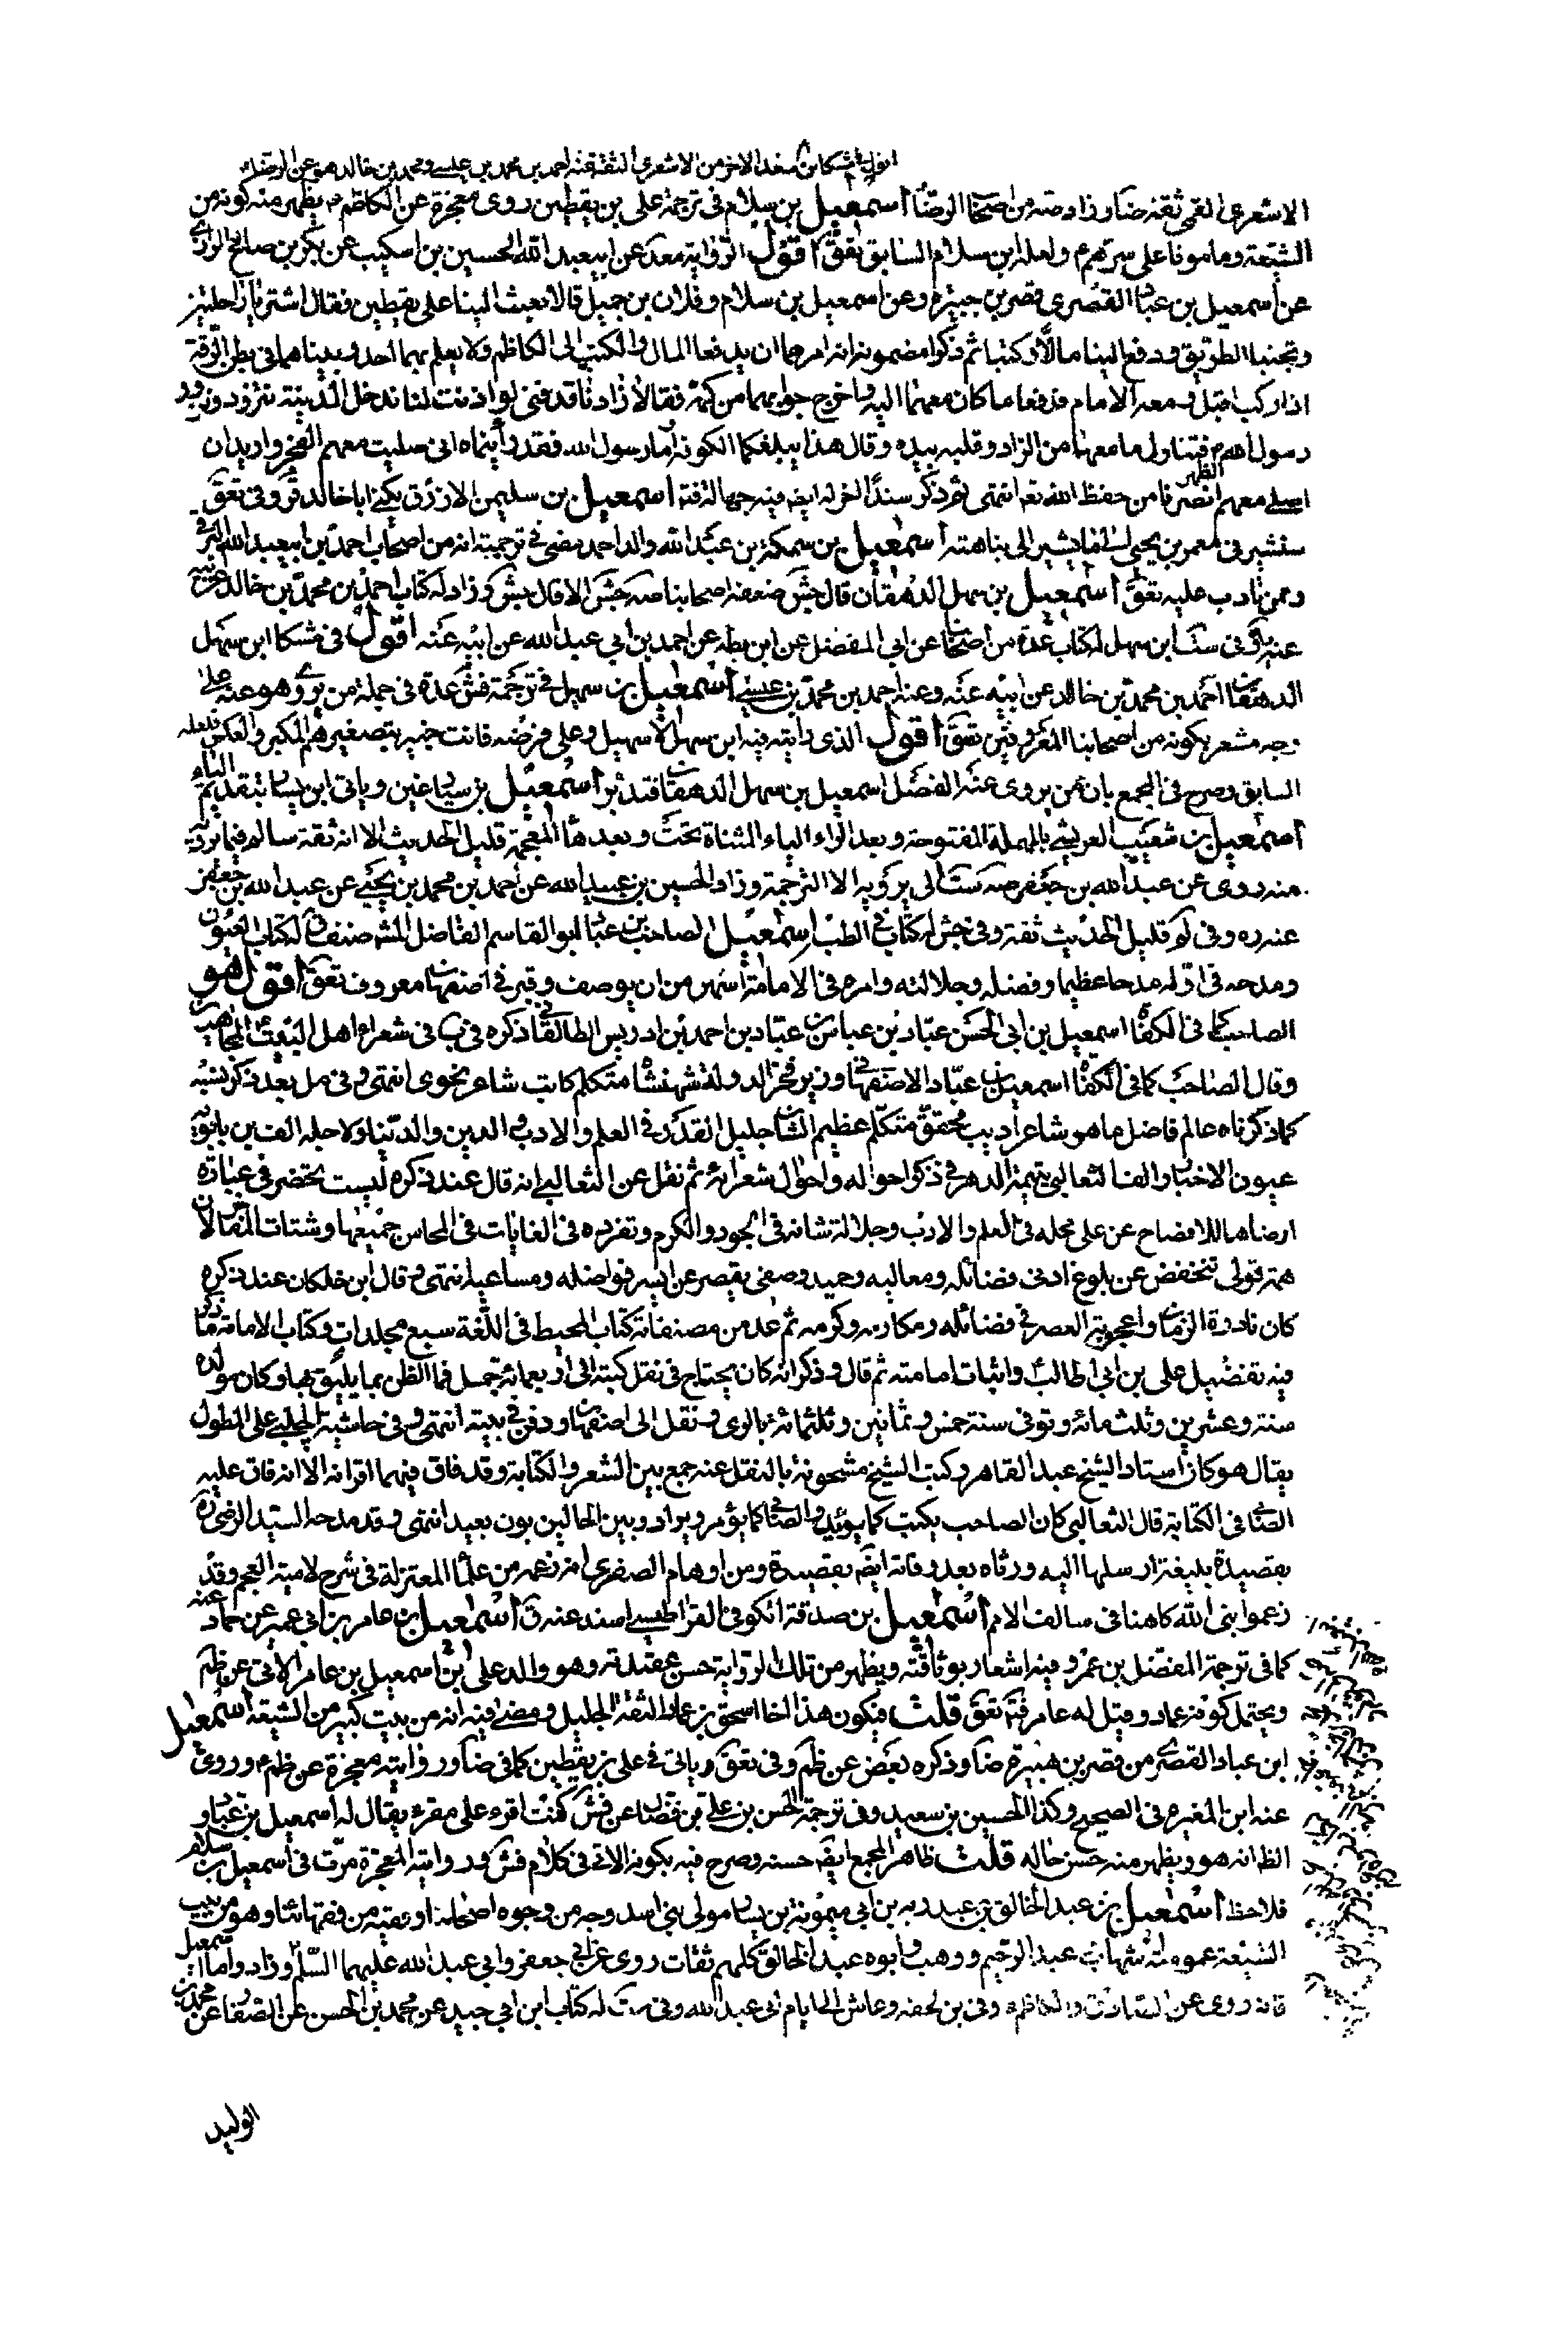 اقول في مشكا ابن سعد الاخوص الاشعري الثقة عنه احمد بن محمد بن عيسى ومحمد بن خالد هو عن الرضا ع
الاشعري القمي ثقة ضا وزاد صه من اصحا الرضا ع اسمعيل بن سلام في ترجمة علي بن يقطين روى معجزة عن الكاظم ع يظهر منه كونه من
الشيعة ومامونا على سرهم ع ولعله ابن سلام السابق تعق اقول الرواية معه كذا عن ابي عبد الله الحسين بن اسكيب عن بكر بن صالح الرازي
عن اسمعيل بن عباد القصري قصر بن هبيرة وعن اسمعيل بن سلام وفلان بن حميل قالا بعث الينا علي بن يقطين فقال اشتريا راحلتين
وتجنبا الطريق ودفع الينا مالا وكتبا ثم ذكرا مضمونه انه امرهما ان يدفعا المال والكتب الى الكاظم ولا يعلم بهما احد وبيناهما في بطن الرقة
اذا راكب اقبل ومعه الامام فدفعا ما كان معهما اليه فاخرج جوابهما من كمه فقالا زادنا قد فنى لو اذنت لنا ندخل المدينة نتزود ونزور
رسول الله ص فتناول ما معهما من الزاد وقلبه بيده وقال هذا يبلغكما الكوفة اما رسول الله فقد رايتماه اني صليت معهم الفجر واريد ان
اصلي معهم الظهر انصرفا من حفظ الله تعالى انتهى ثم ذكر سندا اخر له ايضا فيه جهالة فتد اسمعيل بن سليمن الازرق يكنى ابا خالد قر وفي تعق
سنشير في معمر بن يحيى بن بسام الى ما يشير الى نباهته اسمعيل بن سمكة بن عبد الله والد احمد مضى في ترجمته انه من اصحاب احمد بن ابي عبد الله البرقي
وممن تادب عليه تعق اسمعيل بن سهل الدهقان قال جش ضعفه اصحابنا صه جش الا قال جش وزاد له كتاب احمد بن محمد بن خالد عن ابيه
عنه به وفي ست ابن سهل له كتاب عدة من اصحابنا عن ابي المفضل عن ابن بطة عن احمد بن ابي عبد الله عن ابيه عنه اقول في مشكا ابن سهل
الدهقان احمد بن محمد بن خالد عن ابيه عنه وعنه احمد بن محمد بن عيسى اسمعيل بن سهيل في ترجمة فش عده في جملة من يروي هو عنه على
وجه مشعر بكونه من اصحابنا المعروفين تعق اقول الذي رايته فيه ابن سهل لا سهيل وعلى فرضه فانت خبير بتصغيرهم المكبر والعكس فلعله
السابق وصرح في المجمع بان من يروي عنه الفضل اسمعيل بن سهل الدهقان فتدبر اسمعيل بن سيا غين وياتي ابن يسار بتقديم الياء
اسمعيل بن شعيب العريشي بالمهملة المفتوحة وبعد الراء الياء المثناة تحت وبعدها المعجمة قليل الحديث الا انه ثقة سالم فيما يرويه
منه روى عن عبد الله بن جعفر صه ست الى يرويه الا الترجمة وزاد الحسين بن عبيد الله عن احمد بن محمد بن يحيى عن عبد الله بن جعفر
عنه ره وفي لم قليل الحديث ثقة وفي جش له كتاب في الطب اسمعيل الصاحب بن عباد ابو القاسم الفاضل المشهور صنف ق له كتاب العيون
ومدحه في اوله مدحا عظيما وفضله وجلالته وامره في الامامة اشهر من ان يوصف وقبره في اصفهان معروف تعق اقول هو
الصاحب كافي الكفاة اسمعيل بن ابي الحسن عباد بن عباس بن عباد بن احمد بن ادريس الطالقاني ذكره في ب في شعراء اهل البيت المجاهرين
وقال الصاحب كافي الكفاة اسمعيل بن عباد الاصفهاني وزير فخر الدولة شهنشاه متكلم كاتب شاعر نحوي انتهى وفي مل بعد ذكر نسبه
كما ذكرناه عالم فاضل ماهر شاعر اديب محقق متكلم عظيم الشان جليل القدر في العلم والادب والدين والدنيا ولاجله الف ابن بابويه
عيون الاخبار والف الثعالبي يتيمة الدهر في ذكر احواله واحوال شعرائه ثم نقل عن الثعالبي انه قال عند ذكره ليست تحضرني عبارة
ارضاها للافصاح عن علو محله في العلم والادب وجلالة شانه في الجود والكرم وتفرده في الغايات في المحاسن جميعها وشتات المفاخر لان
همة قولي تنخفض عن بلوغ ادنى فضائله ومعاليه وجهد وصفي يقصر عن ايسر فواضله ومساعيه انتهى وقال ابن خلكان عند ذكره
كان نادرة الزمان واعجوبة العصر في فضائله ومكارمه وكرمه ثم عد من مصنفاته كتاب المحيط في اللغة سبع مجلدات وكتاب الامامة ذكر
فيه تفضيل علي بن ابي طالب واثبات امامته ثم قال وذكر انه كان يحتاج في نقل كتبه الى اربعمائة جمل فما الظن بما يليق بها وكان مولده
سنة وعشرين وثلث مائة وتوفي سنة خمس وثمانين وثلثمائة بالري ونقل الى اصفهان ودفن في بيته انتهى وفي حاشية الچلبي على المطول
يقال هو كان استاد الشيخ عبد القاهر وكتب الشيخ مشحونة بالنقل عنه جمع بين الشعر والكتابة وقد فاق فيهما اقرانه الا انه فاق عليه
الصابي في الكتابة قال الثعالبي كان الصاحب يكتب كما يريد والصابي كما يؤمر ويراد وبين الحالين بون بعيد انتهى وقد مدحه السيد الرضي ره
بقصيدة بليغة ارسلها اليه ورثاه بعد وفاته ايضا بقصيدة ومن اوهام الصفدي انه زعمه من علماء المعتزلة في شرح لامية العجم وقد
زعموا بنى الله كاهنا في سالف الامم اسمعيل بن صدقة الكوفي القراطيسي اسند عنه ق اسمعيل بن عامر بن ابي عمير عن حماد عنه
كما في ترجمة المفضل بن عمر وفيه اشعار بوثاقته ويظهر من تلك الرواية حسن عقيدته وهو والد علي بن اسمعيل بن عامر الاتي عن ظم
ويحتمل كونه عمار وقيل له عامر فتد تعق قلت فيكون هذا اخا اسحق بن عمار الثقة الجليل ومضى فيه انه من بيت كبير من الشيعة اسمعيل
ابن عباد القصري من قصر بن هبيرة ضا وذكره بعض عن ظم وفي تعق وياتي في علي بن يقطين كما في ضا ورواية معجزة عن ظم ع وروى
عنه ابن المغيرة في الصحيح وكذا الحسين بن سعيد وفي ترجمة الحسن بن علي بن فضال عن فش كنت اقرء على مقرء يقال له اسمعيل بن عباد و
الظ انه هو ويظهر منه حسن حاله قلت ظاهر المجمع ايضا حسنه وصرح فيه بكونه الاتي في كلام فش ورواية المعجزة مرت في اسمعيل بن سلام
فلاحظ اسمعيل بن عبد الخالق بن عبد ربه بن ابي ميمونة بن يسار مولى بني اسد وجه من وجوه اصحابنا وفقيه من فقهائنا وهو من بيت
الشيعة عمومته شهاب وعبد الرحيم ووهب وابوه عبد الخالق كلهم ثقات روى عن ابي جعفر وابي عبد الله عليهما السلم وزاد واما اسمعيل
فانه روى عن الصادق والكاظم ع وفي بن لحقه وعاش الى ايام ابي عبد الله وفي ست له كتاب ابن ابي جيد عن محمد بن الحسن عن الصفار عن محمد بن
الوليد